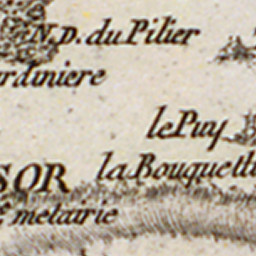 N.D. du Pilier
rdiniere
le Puy
la Bouquett
SOR
metairie